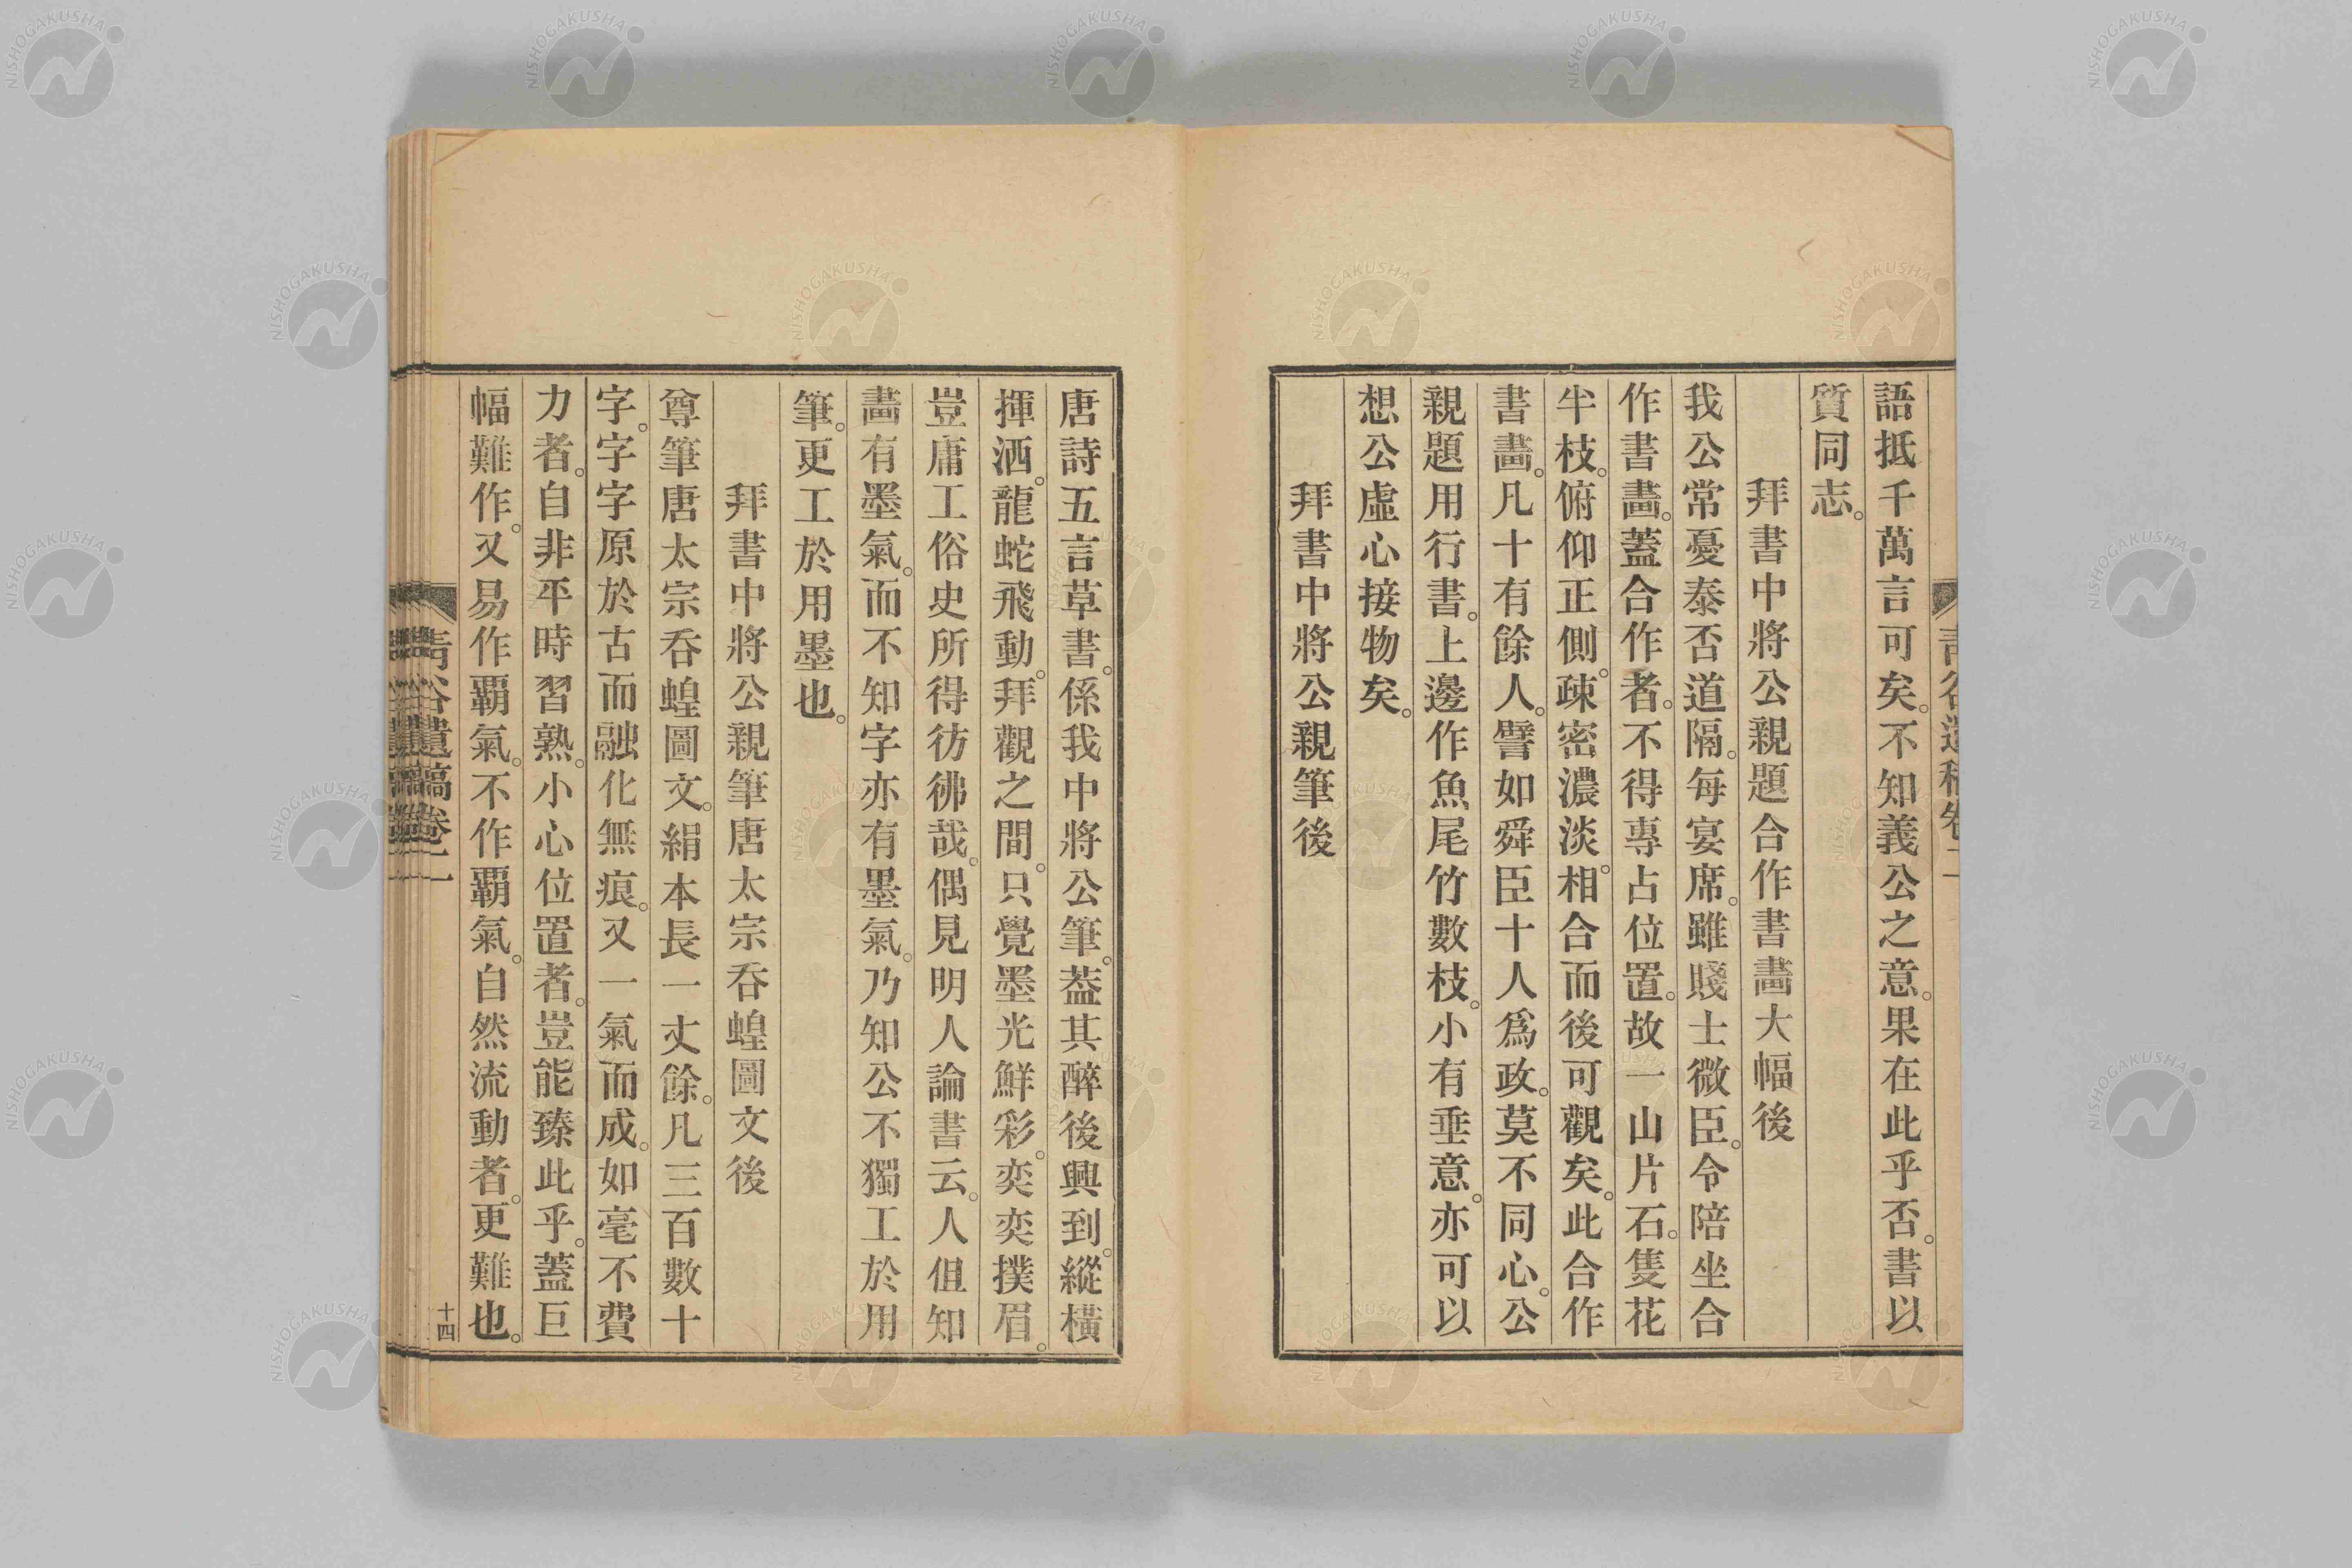 語抵千萬言可矣。不知義公之意。果在此乎否。書以
質同志。
拜書中將公親題合作書畵大幅後
我公常憂泰否道隔。每宴席。雖賤士微臣。令陪坐合
作書畵。蓋合作者。不得專占位置。故一山片石。隻花
半枝。俯仰正側。疎密濃淡。相合而後可觀矣。此合作
書畵。凡十有餘人。譬如舜臣十人爲政。莫不同心。公
親題用行書。上邊作魚尾竹數枝。小有垂意。亦可以
想公虛心接物矣。
拜書中將公親筆後
唐詩五言草書。係我中將公筆。葢其醉後興到。縱橫
揮洒。龍蛇飛動。拜觀之間。只覺墨光鮮彩。奕奕撲眉。
豈庸工俗史所得彷彿哉。偶見明人論書云。人但知
畵有墨氣。而不知字亦有墨氣。乃知公不獨工於用
筆。更工於用墨也。
拜書中將公親筆唐太宗呑蝗圖文後
尊筆唐太宗呑蝗圖文。絹本長一丈餘。凡三百數十
字。字字原於古而融化無痕。又一氣而成。如毫不費
力者。自非平時習熟。小心位置者。豈能臻此乎。蓋巨
幅難作。又易作覇氣。不作覇氣。自然流動者。更難也。
靑谷遺稿卷二
十四
NISHOGAKUSHA